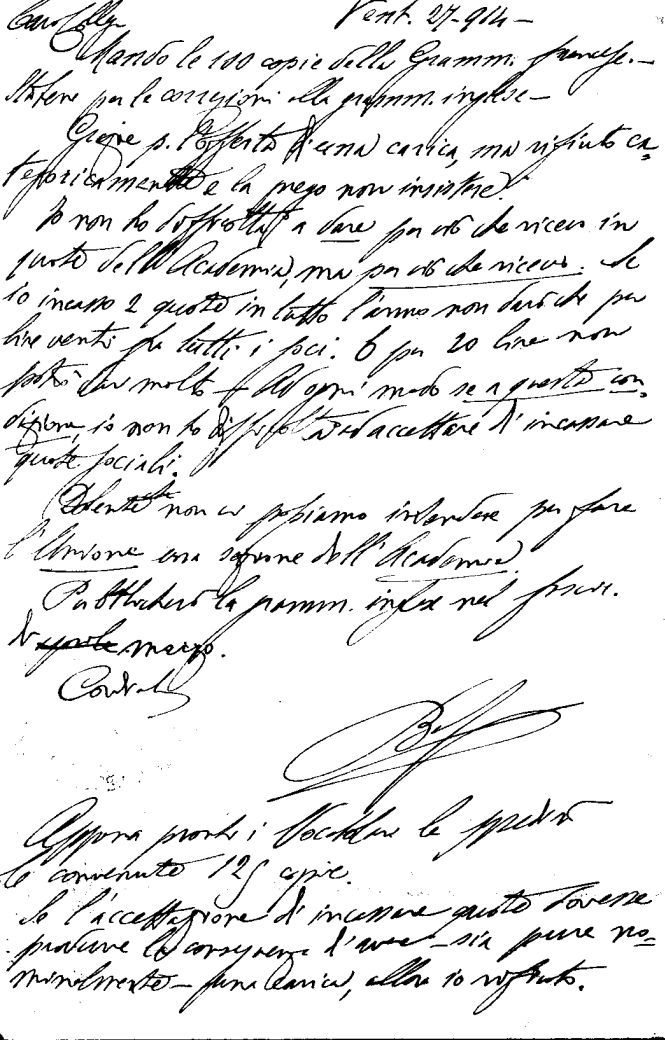 Caro Collega Vent. 27-914-
Mando le 100 copie della Gramm. francese.-
per le correzioni alla gramm. inglese-
Grazie p. l'offerta d'una carica, ma rifiuto ca=
tegoricamente e la prego non insistere.
Io non ho difficoltà a dare per ciò che ricevo in
quote dell'Academia, ma per ciò che ricevo. Se
io incasso 2 quote in tutto l'anno non darò che per
lire venti fra tutti i soci. E per 20 lire non
potrò dar molto - Ad ogni modo se a questa con=
dizione, io non ho difficoltà ad accettare d'incassare
quote sociali.
non ci possiamo intendere per fare
l'Unione una sezione dell'Academia.
Pubblicherò la gramm. inglese nel fasci.
di aprile marzo.
Cordial
Appena pronti i Vocabolari le spedirò
le convenute 125 copie.
Se l'accettazione d'incassare quote dovesse
produrre la conseguenza d'avere - sia pure no=
minalmente - una carica, allora io rifiuto.